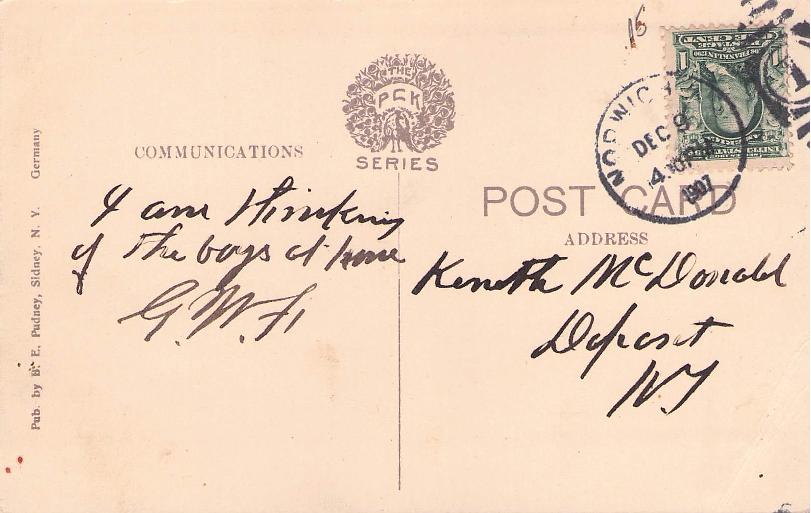 15
THE
PCK
SERIES
COMMUNICATIONS
POST CARD
ADDRESS
NORWICH
DEC 9
4
1907
1
ONE CENT
POSTAGE
FRANKLIN
I am thinking
of the boys at home
G. W. F.
Kenneth McDonald
Deposit
NY
Pub. by B. E. Pudney, Sidney, N. Y. Germany